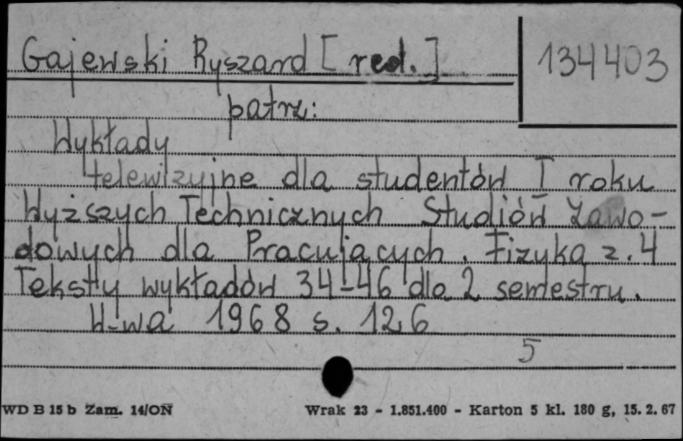 Gajewski Ryszard [red.]
134403
patrz:
Wykłady
telewizyjne dla studentów I roku
Wyższych Technicznych Studiów Zawo-
dowych dla Pracujących. Fizyka z. 4
Teksty wykładów 34-46 dla 2 semestru.
W-wa 1968 s. 126
5
WD B 15 b Zam. 14/ON Wrak 23 - 1.851.400 - Karton 5 kl. 180 g, 15. 2. 67